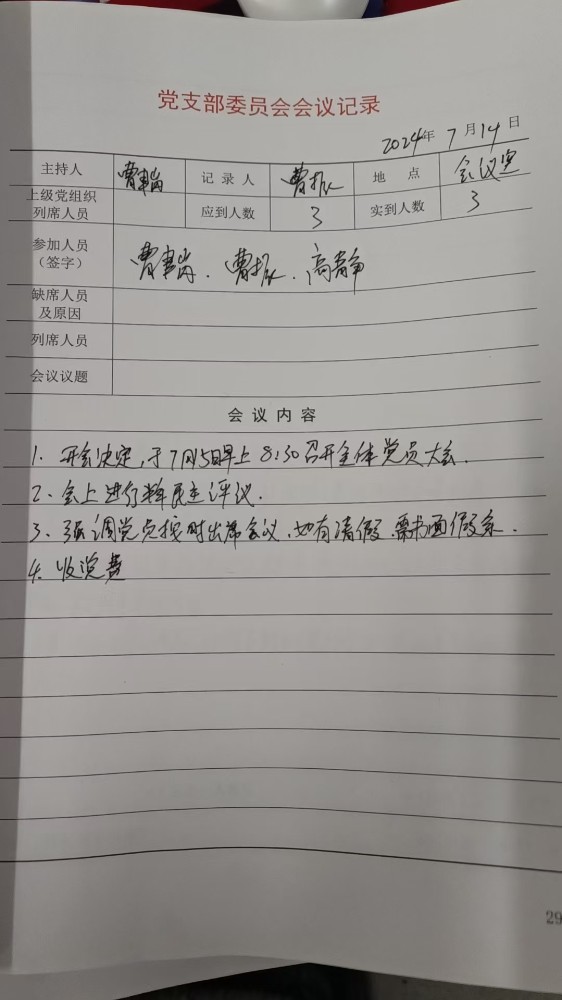 党支部委员会会议记录
2024年 7月14日
主持人 记录人 曹振 地点 会议室
上级党组织列席人员 应到人数 3 实到人数 3
参加人员(签字) 曹 、曹振、高静
缺席人员及原因
列席人员
会议议题
会议内容
1. 开会决定,于7月15日早上8:30召开全体党员大会.
2、会上进行半年民主评议.
3、强调党员按时出席会议,如有请假,需书面假条.
4. 收党费
29